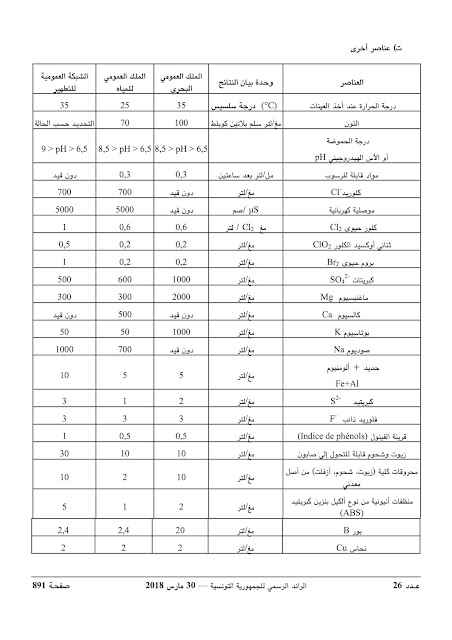 ت) عناصر أخرى
العناصر وحدة بيان النتائج الملك العمومي البحري الملك العمومي للمياه الشبكة العمومية للتطهير
درجة الحرارة عند أخذ العينات (°C) درجة سلسيس 35 25 35
اللون مغ/لتر سلم بلاتين كوبلط 100 70 التحديد حسب الحالة
درجة الحموضة
أو الأس الهيدروجيني pH 8,5 > pH > 6,5 8,5 > pH > 6,5 9 > pH > 6,5
مواد قابلة للرسوب مل/لتر بعد ساعتين 0,3 0,3 دون قيد
كلوريد Cl⁻ مغ/لتر دون قيد 700 700
موصلية كهربائية µS /صم دون قيد 5000 5000
كلور حيوي Cl₂ مغ Cl₂ / لتر 0,6 0,6 1
ثنائي أوكسيد الكلور ClO₂ مغ/لتر 0,2 0,2 0,5
بروم حيوي Br₂ مغ/لتر 0,2 0,2 1
كبريتات SO₄²⁻ مغ/لتر 1000 600 500
ماغنيسيوم Mg مغ/لتر 2000 300 300
كالسيوم Ca مغ/لتر دون قيد 500 دون قيد
بوتاسيوم K مغ/لتر 1000 50 50
صوديوم Na مغ/لتر دون قيد 700 1000
حديد + ألومنيوم
Fe+Al مغ/لتر 5 5 10
كبريتيد S²⁻ مغ/لتر 2 1 3
فلوريد ذائب F⁻ مغ/لتر 3 3 3
قرينة الفينول (Indice de phénols) مغ/لتر 0,5 0,5 1
زيوت وشحوم قابلة للتحول إلى صابون مغ/لتر 10 10 30
محروقات كلية (زيوت، شحوم، أزفلت) من أصل
معدني مغ/لتر 10 2 10
منظفات أنيونية من نوع ألكيل بنزين كبريتيد
(ABS) مغ/لتر 2 1 5
بور B مغ/لتر 20 2,4 2,4
نحاس Cu مغ/لتر 2 2 2
عـدد 26 الرائد الرسمي للجمهورية التونسية — 30 مارس 2018 صفحـة 891